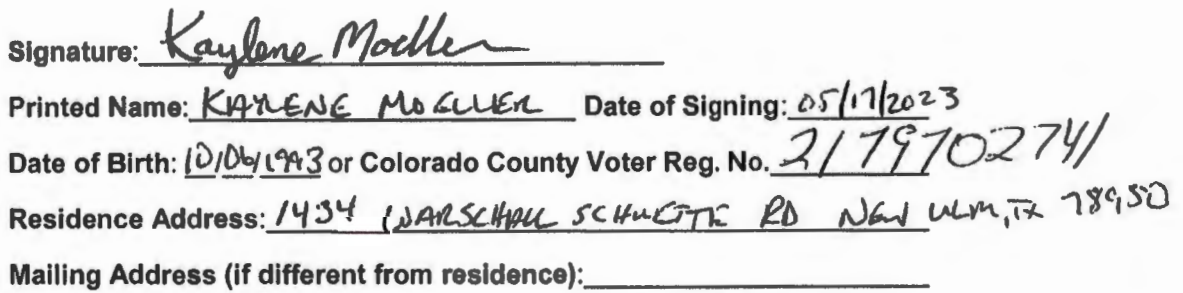 Signature: Kaylene Moeller
Printed Name: KAYLENE MOELLER Date of Signing: 05/17/2023
Date of Birth: 10/06/1993 or Colorado County Voter Reg. No. 2179702741
Residence Address: 1434 WARSCHALL SCHUETTE RD NEW ULM, TX 78950
Mailing Address (if different from residence):